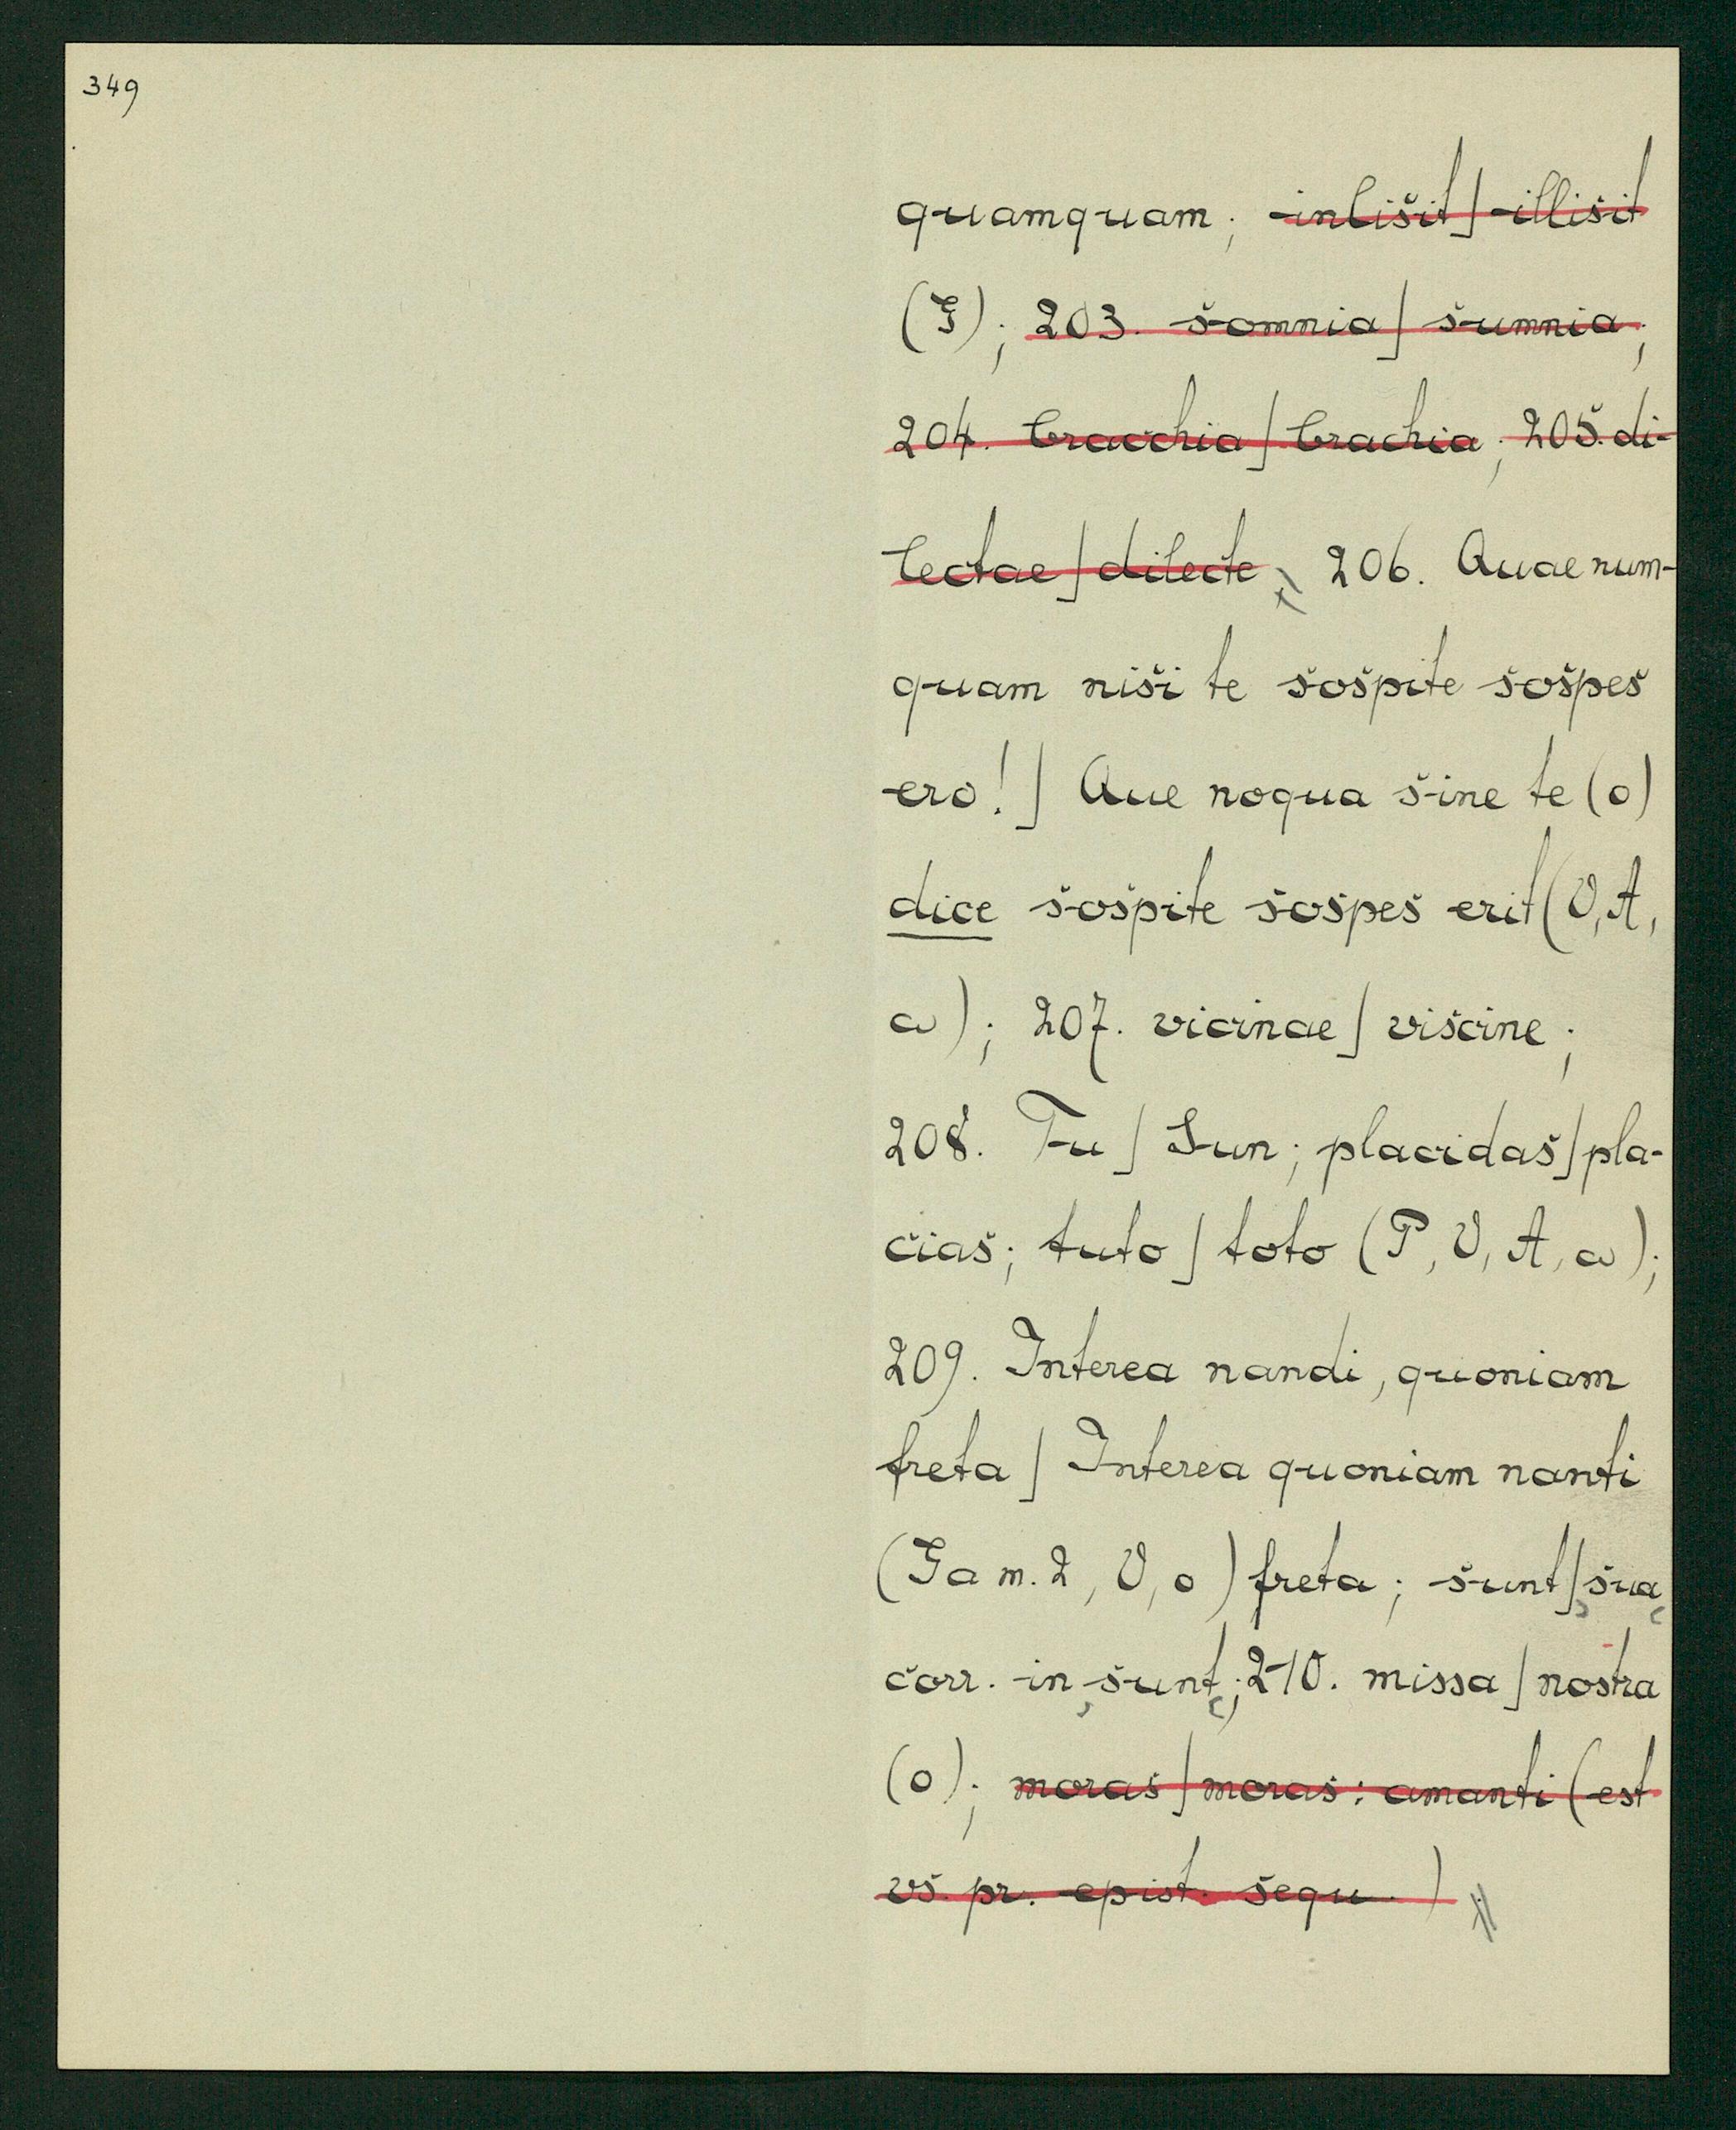 349
quamquam; inlisit] illisit
(G); 203. somnia] sumnia;
204. bracchia] brachia; 205. di-
lectae] dilecte; 206. Quae num-
quam nisi te sospite sospes
ero!] Que noqua sine te (o)
dice sospite sospes erit (V, A,
ω); 207. vicinae] viscine;
208. Tu] Sun; placidas] pla-
cias; tuto] toto (P, V, A, ω);
209. Interea nandi, quoniam
freta] Interea quoniam nanti
(G a m. 2, V, o) freta; sunt] sua
corr. in sunt; 210. missa] nostra
(o); moras] moras: amanti (est
vs. pr. epist. sequ.)